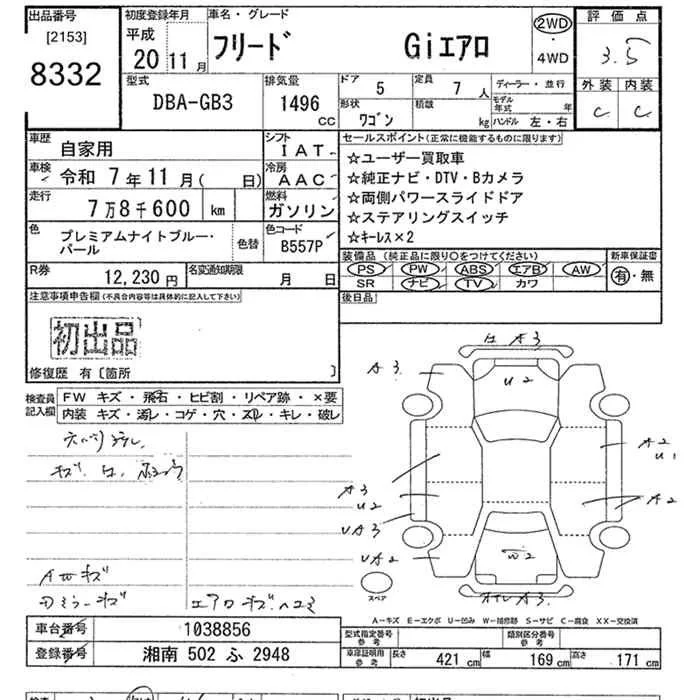 出品番号
[2153]
8332
初度登録年月
平成
20 11 月
車名・グレード
フリード Giエアロ
2WD
・
4WD
評価点
3.5
外装 内装
C C
型式
DBA-GB3
排気量
1496 CC
ドア 5
形状 ワゴン
定員 7 人
積載 kg
ディーラー・並行
モデル年式 年
ハンドル 左・右
車歴 自家用
車検 令和 7 年 11 月( 日)
走行 7万8千600 km
色 プレミアムナイトブルー・パール
色替
シフト IAT
冷房 AAC
燃料 ガソリン
色コード B557P
セールスポイント(正常に機能するものに限ります)
☆ユーザー買取車
☆純正ナビ・DTV・Bカメラ
☆両側パワースライドドア
☆ステアリングスイッチ
☆キーレス×2
装備品(純正品に限り○をつけてください)
PS PW ABS エアB AW
SR ナビ TV カワ
新車保証書
有・無
R券 12,230 円
名変通知期限 月 日
後日品
注意事項申告欄(不具合内容等は具体的に記入して下さい)
初出品
修復歴 有〔箇所 〕
検査員記入欄
FW キズ・飛石・ヒビ割・リペア跡・×要
内装 キズ・汚レ・コゲ・穴・スレ・キレ・破レ
A3
A3
U2
A2
U1
A3
U2
A2
UA3
UA2
W2
A3
スペア
AWキズ
エアロキズ.ヘコミ
A-キズ E-エクボ U-凹み W-補修跡 S-サビ C-腐食 XX-交換済
車台番号 1038856
登録番号 湘南 502 ふ 2948
型式指定番号 参考
類別区分番号 参考
車庫証明用 参考
長さ 421 cm
幅 169 cm
高さ 171 cm